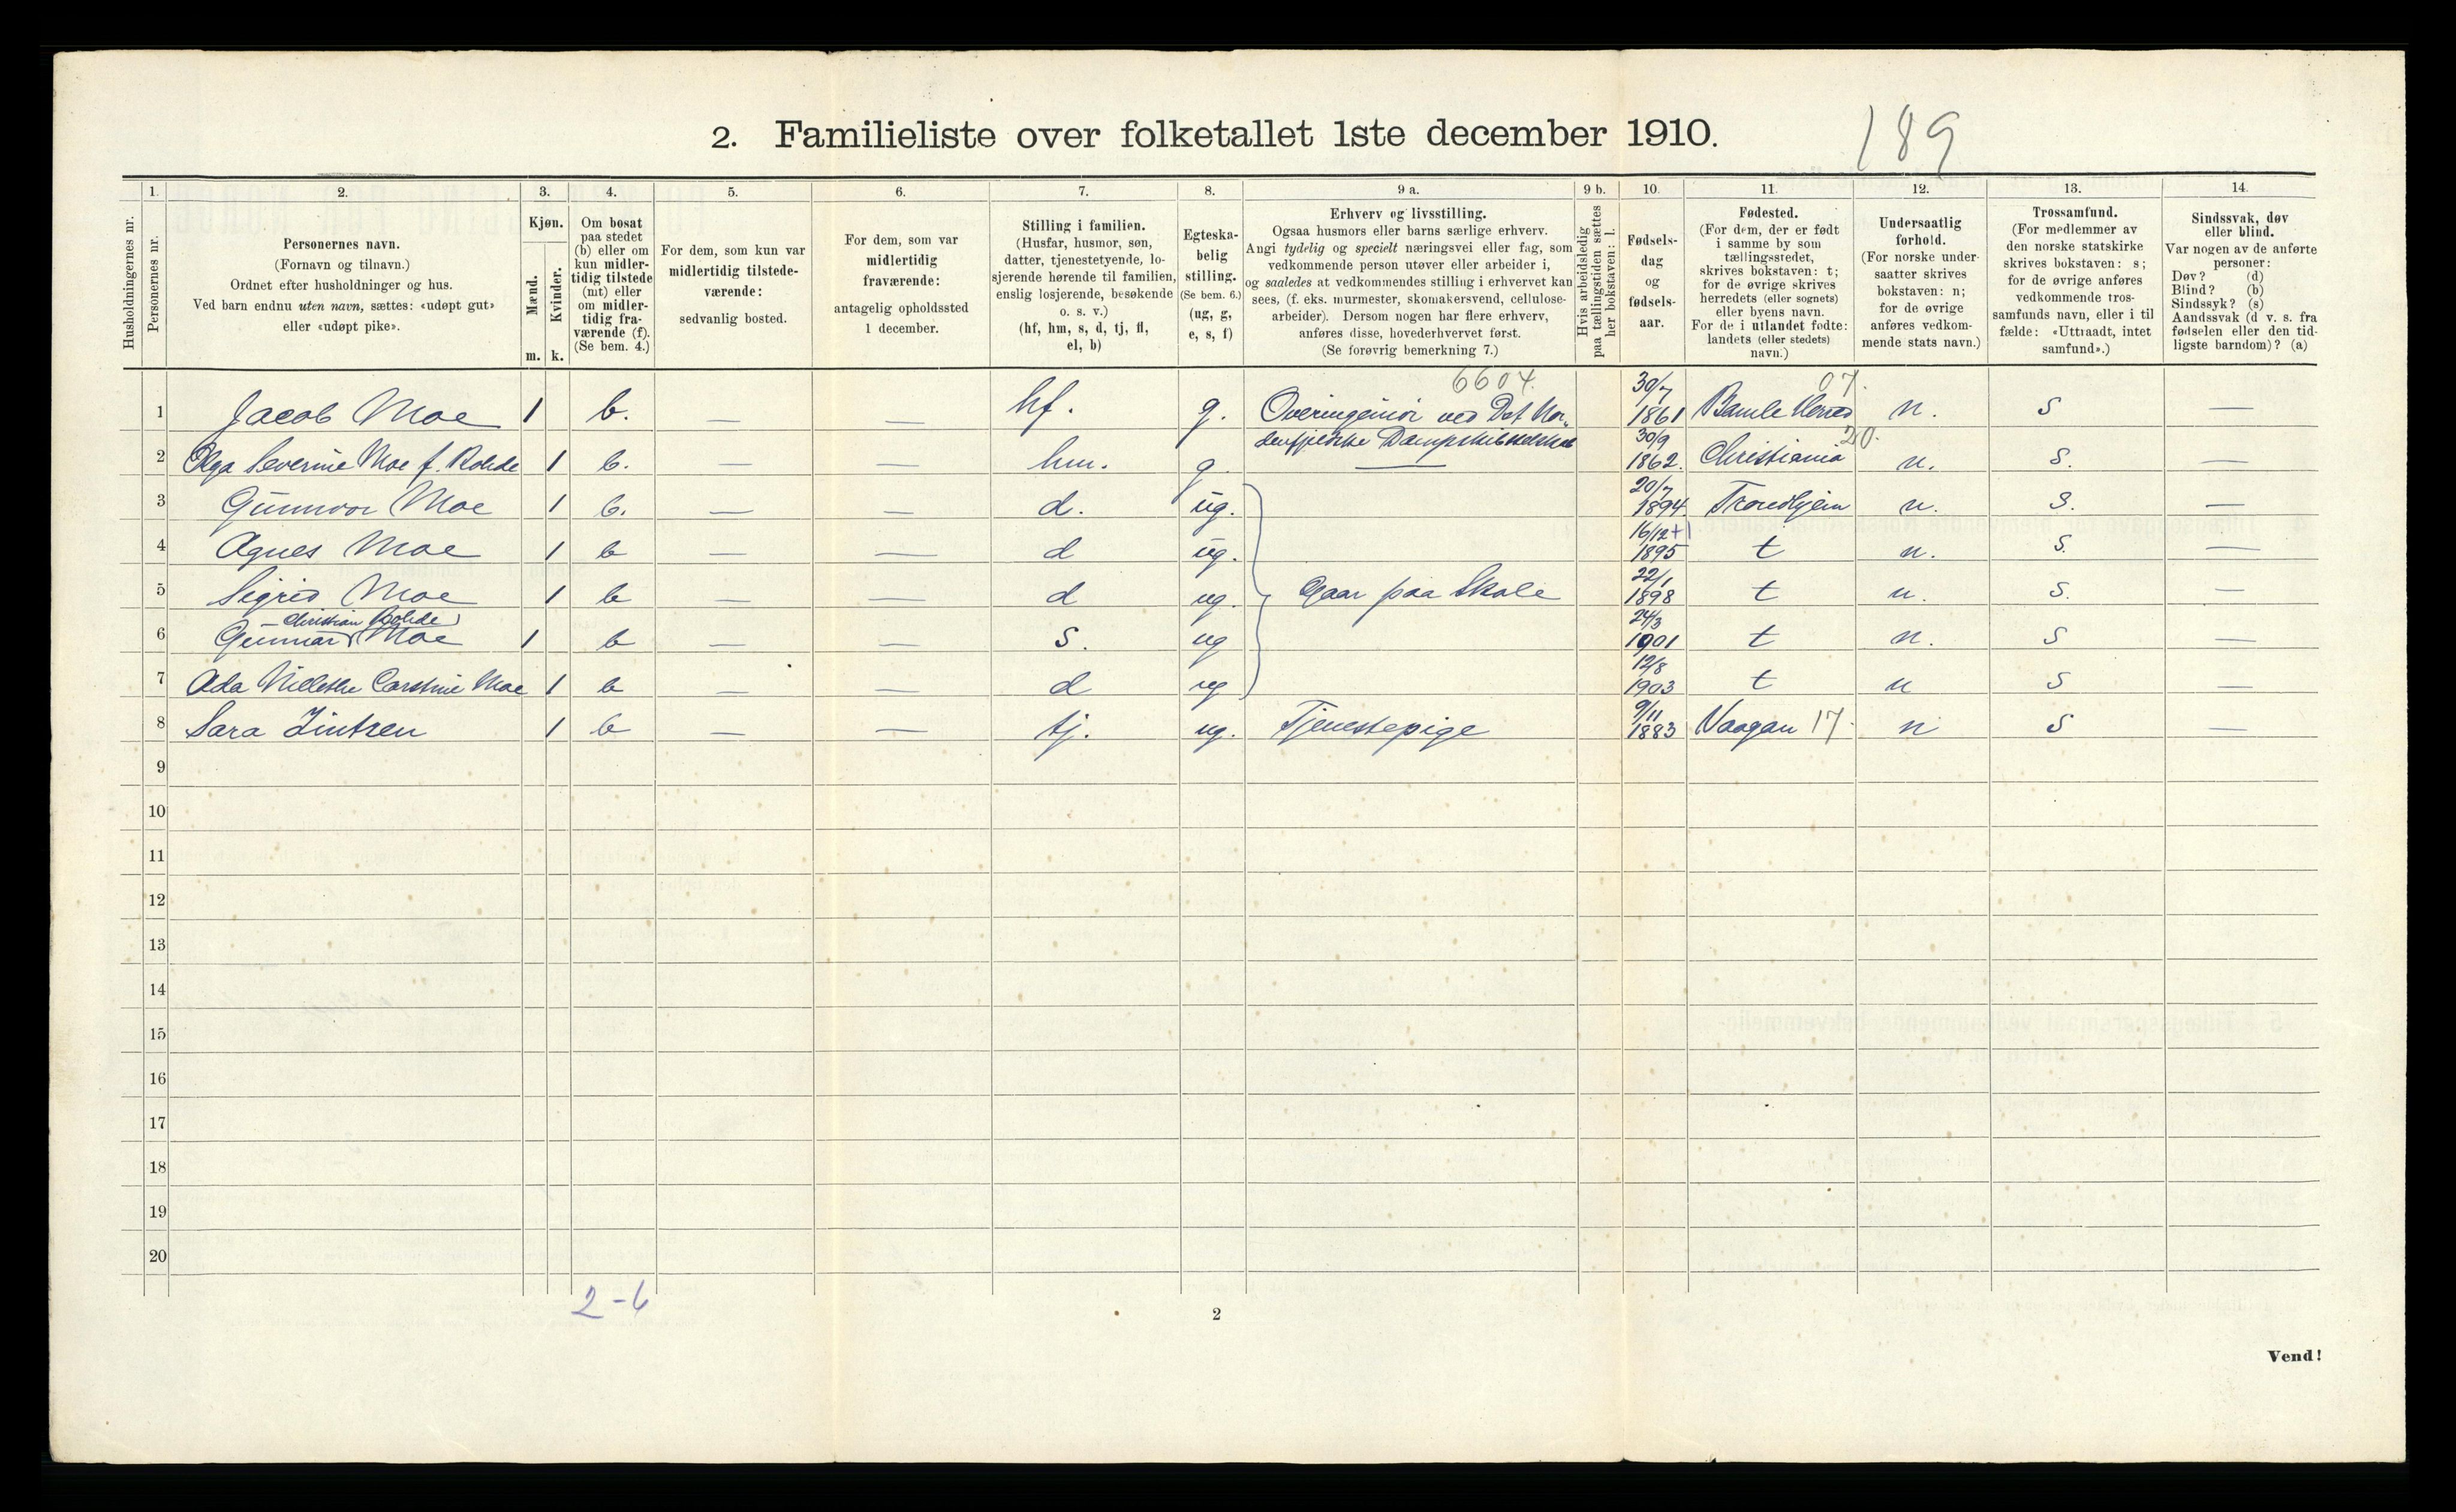 2. Familieliste over folketallet 1ste december 1910.
189
Husholdningernes nr.
1.
Personernes nr.
2.
Personernes navn.
(Fornavn og tilnavn.)
Ordnet efter husholdninger og hus.
Ved barn endnu uten navn, sættes: «udøpt gut»
eller «udøpt pike».
3.
Kjøn.
Mænd.
Kvinder.
m. k.
4.
Om bosat
paa stedet
(b) eller om
kun midler-
tidig tilstede
(mt) eller
om midler-
tidig fra-
værende (f).
(Se bem. 4.)
5.
For dem, som kun var
midlertidig tilstede-
værende:
sedvanlig bosted.
6.
For dem, som var
midlertidig
fraværende:
antagelig opholdssted
1 december.
7.
Stilling i familien.
(Husfar, husmor, søn,
datter, tjenestetyende, lo-
sjerende hørende til familien,
enslig losjerende, besøkende
o. s. v.)
(hf, hm, s, d, tj, fl,
el, b)
8.
Egteska-
belig
stilling.
(Se bem. 6.)
(ug, g,
e, s, f)
9 a.
Erhverv og livsstilling.
Ogsaa husmors eller barns særlige erhverv.
Angi tydelig og specielt næringsvei eller fag, som
vedkommende person utøver eller arbeider i,
og saaledes at vedkommendes stilling i erhvervet kan
sees, (f. eks. murmester, skomakersvend, cellulose-
arbeider). Dersom nogen har flere erhverv,
anføres disse, hovederhvervet først.
(Se forøvrig bemerkning 7.)
9 b.
Hvis arbeidsledig
paa tællingstiden sættes
her bokstaven: l.
10.
Fødsels-
dag
og
fødsels-
aar.
11.
Fødested.
(For dem, der er født
i samme by som
tællingsstedet,
skrives bokstaven: t;
for de øvrige skrives
herredets (eller sognets)
eller byens navn.
For de i utlandet fødte:
landets (eller stedets)
navn.)
12.
Undersaatlig
forhold.
(For norske under-
saatter skrives
bokstaven: n;
for de øvrige
anføres vedkom-
mende stats navn.)
13.
Trossamfund.
(For medlemmer av
den norske statskirke
skrives bokstaven: s;
for de øvrige anføres
vedkommende tros-
samfunds navn, eller i til
fælde: «Uttraadt, intet
samfund».)
14.
Sindssvak, døv
eller blind.
Var nogen av de anførte
personer:
Døv? (d)
Blind? (b)
Sindssyk? (s)
Aandssvak (d v. s. fra
fødselen eller den tid-
ligste barndom)? (a)
6604. 30/7 07.
1 Jacob Moe 1 b. — — hf. g. Overingeniør ved Det Nor- 1861 Bamle Herred n. s —
denfjeldske Dampskibsselskab 30/9 20.
2 Olga Severine Moe f. Rohde 1 b. — — hm. g — 1862. Christiania n. s. —
20/7
3 Gunnvor Moe 1 b. — — d. ug. 1894. Trondhjem n. s. —
16/12 +1
4 Agnes Moe 1 b — — d ug. 1895 t n. s. —
22/1
5 Sigrid Moe 1 b — — d ug. Gaar paa Skole 1898 t n. s. —
Christian Rohde 24/3
6 Gunnar Moe 1 b — — s. ug 1901 t n. s —
12/8
7 Ada Carstine Moe 1 b — — d ug 1903 t n s —
9/11
8 Sara Zintzen 1 b — — tj. ug. Tjenestepige 1883 Vaagan 17. n s —
9
10
11
12
13
14
15
16
17
18
19
20
2-6
2
Vend!